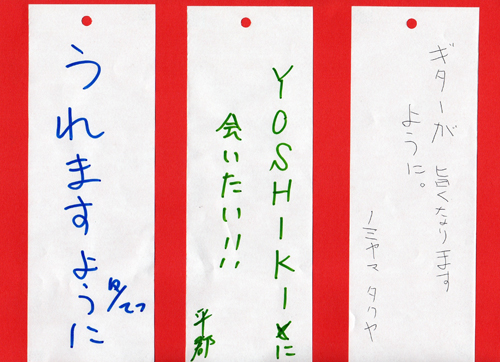 うれますように
YOSHIKIに
会いたい!!!
平郡
ギターが 旨くなります
ように。
ノミヤマ タクヤ